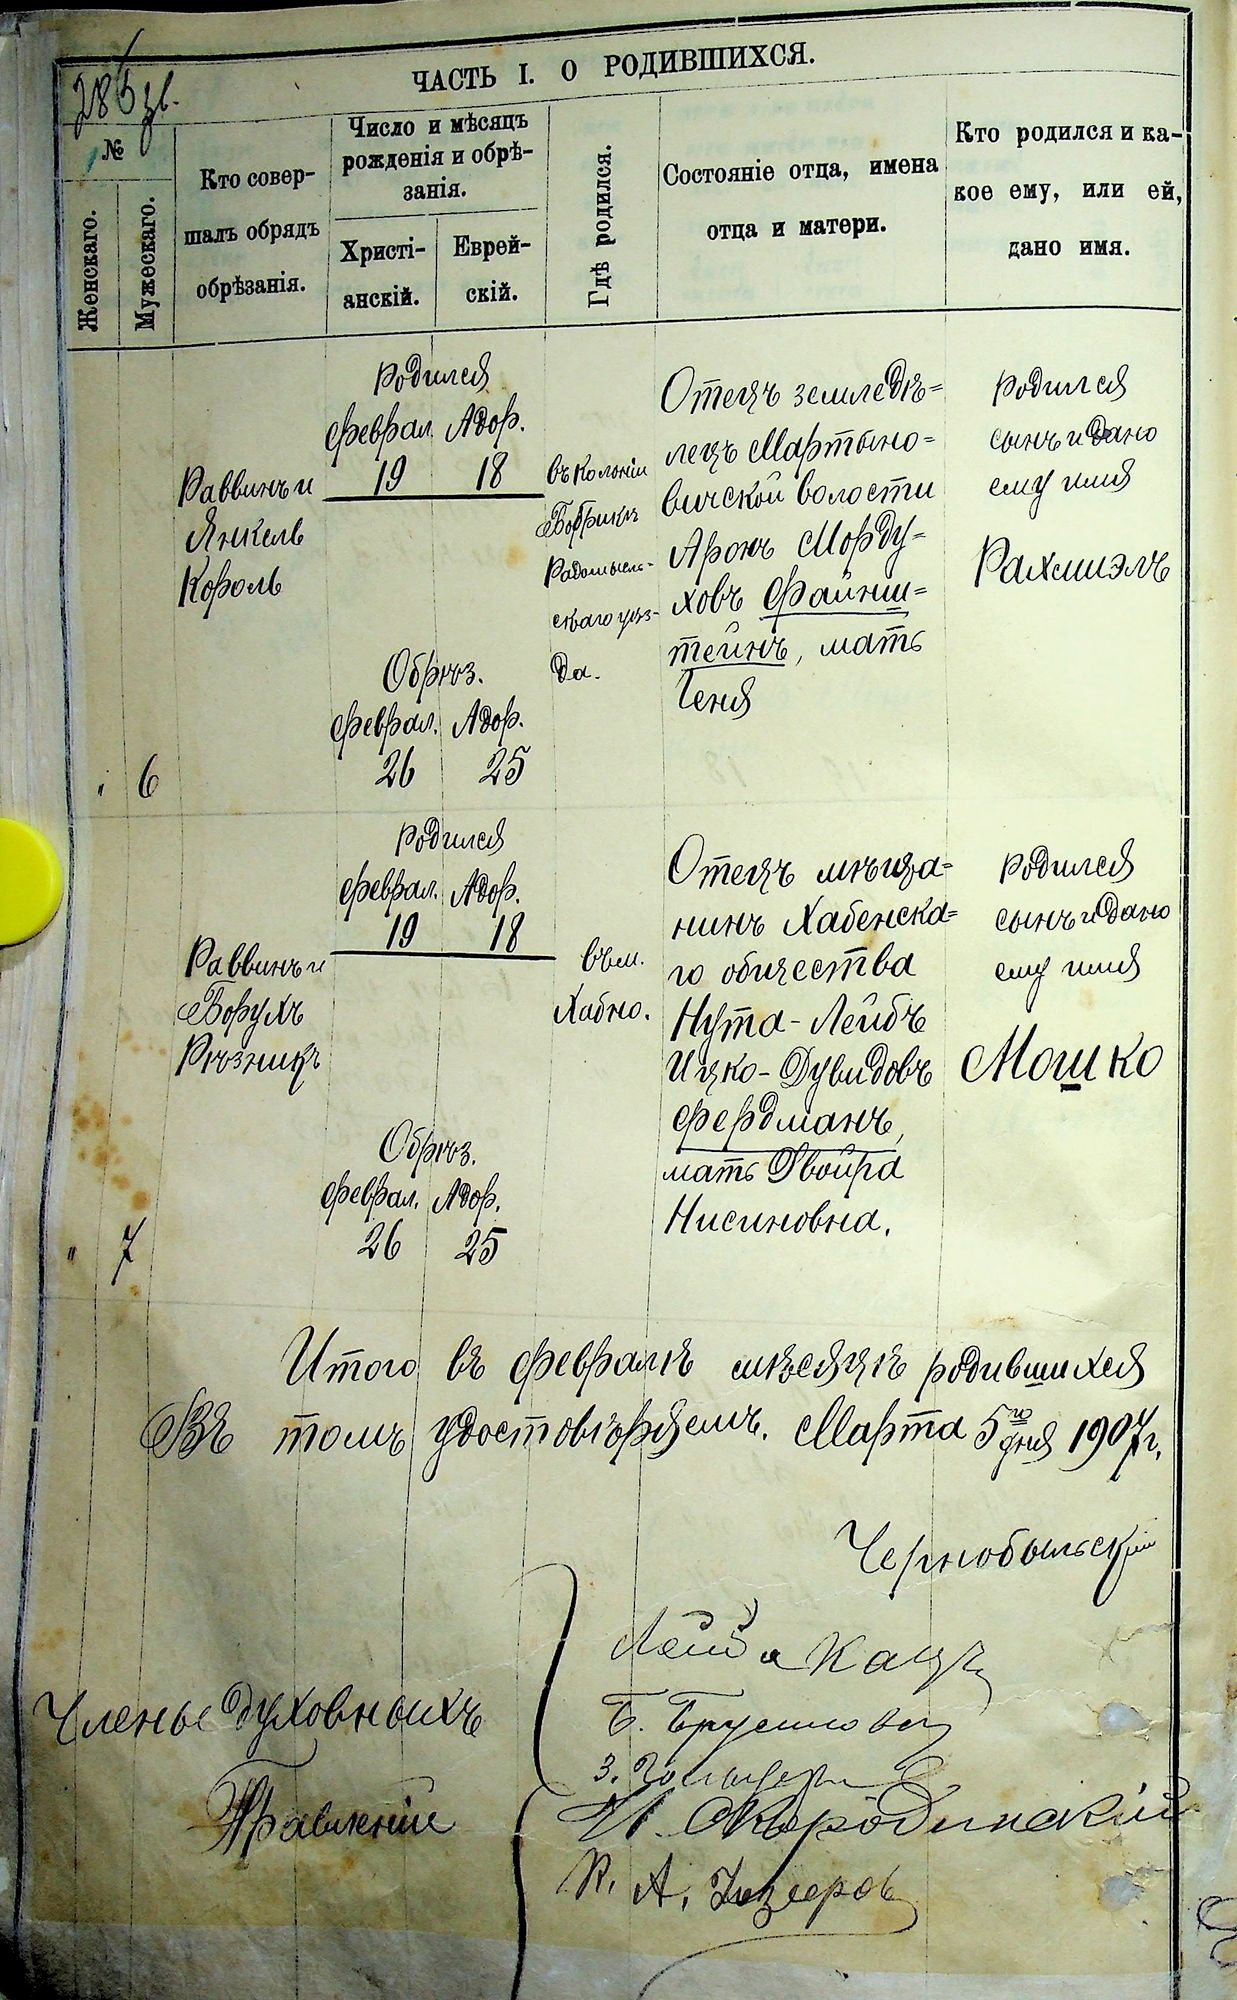 ЧАСТЬ I. О РОДИВШИХСЯ.
286 зв.
№
Женскаго.
Мужескаго.
Кто совер-
шалъ обрядъ
обрѣзанія.
Число и мѣсяцъ
рожденія и обрѣ-
занія.
Христі-
анскій.
Еврей-
скій.
Гдѣ родился.
Состояніе отца, имена
отца и матери.
Кто родился и ка-
кое ему, или ей,
дано имя.
" 6
Раввинъ и
Янкель
Король
Родился
Феврал. Адор.
19 18
Обрѣз.
Феврал. Адор.
26 25
въ Колоніи
Бобрикъ
Радомысль-
скаго уѣз-
да.
Отецъ земледѣ=
лецъ Мартыно=
вичской волости
Аронъ Морду=
ховъ Файнш=
тейнъ, мать
Геня
родился
сынъ и дано
ему имя
Рахмиэлъ
" 7
Раввинъ и
Борухъ
Рѣзникъ
Родился
Феврал. Адор.
19 18
Обрѣз.
Феврал. Адор.
26 25
въ м.
Хабно.
Отецъ мѣща=
нинъ Хабенска=
го общества
Нута-Лейбъ
Ицко-Дувидовъ
Фердманъ,
мать Двойра
Нисиновна.
родился
сынъ и дано
ему имя
Мошко
Итого въ Февралѣ мѣсяцѣ родившихся
Въ томъ удостовѣряемъ. Марта 5го дня 1907 г.
Чернобыльскій
Члены Духовныхъ
Правленій
Лейба Кацъ
Б.
З.
И. Скородинскій
К. А.